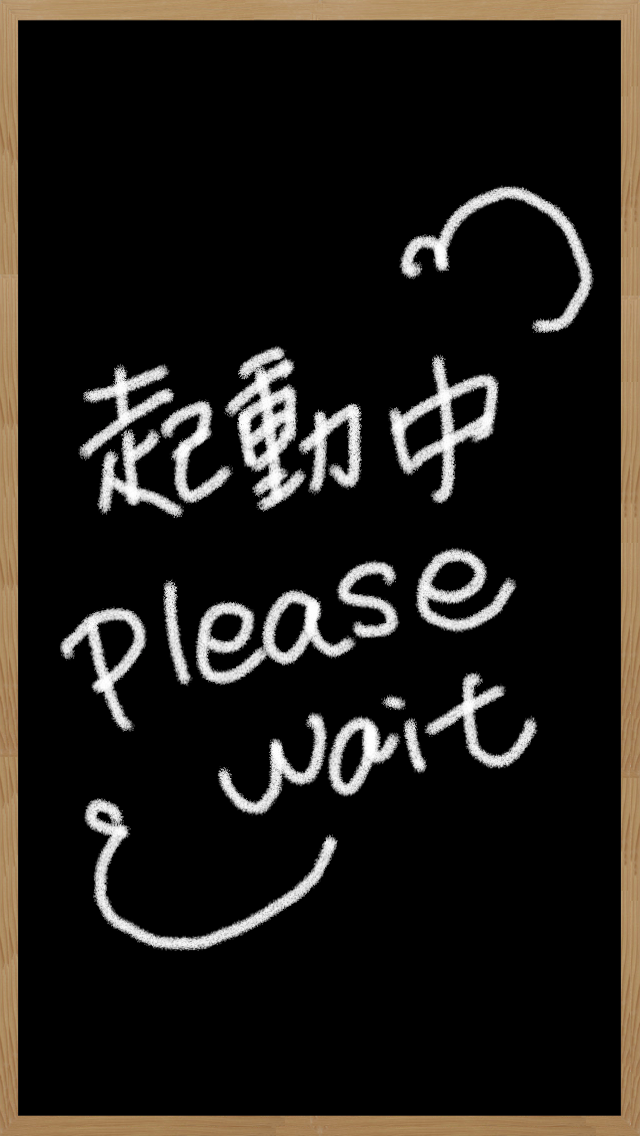 起動中
Please
wait